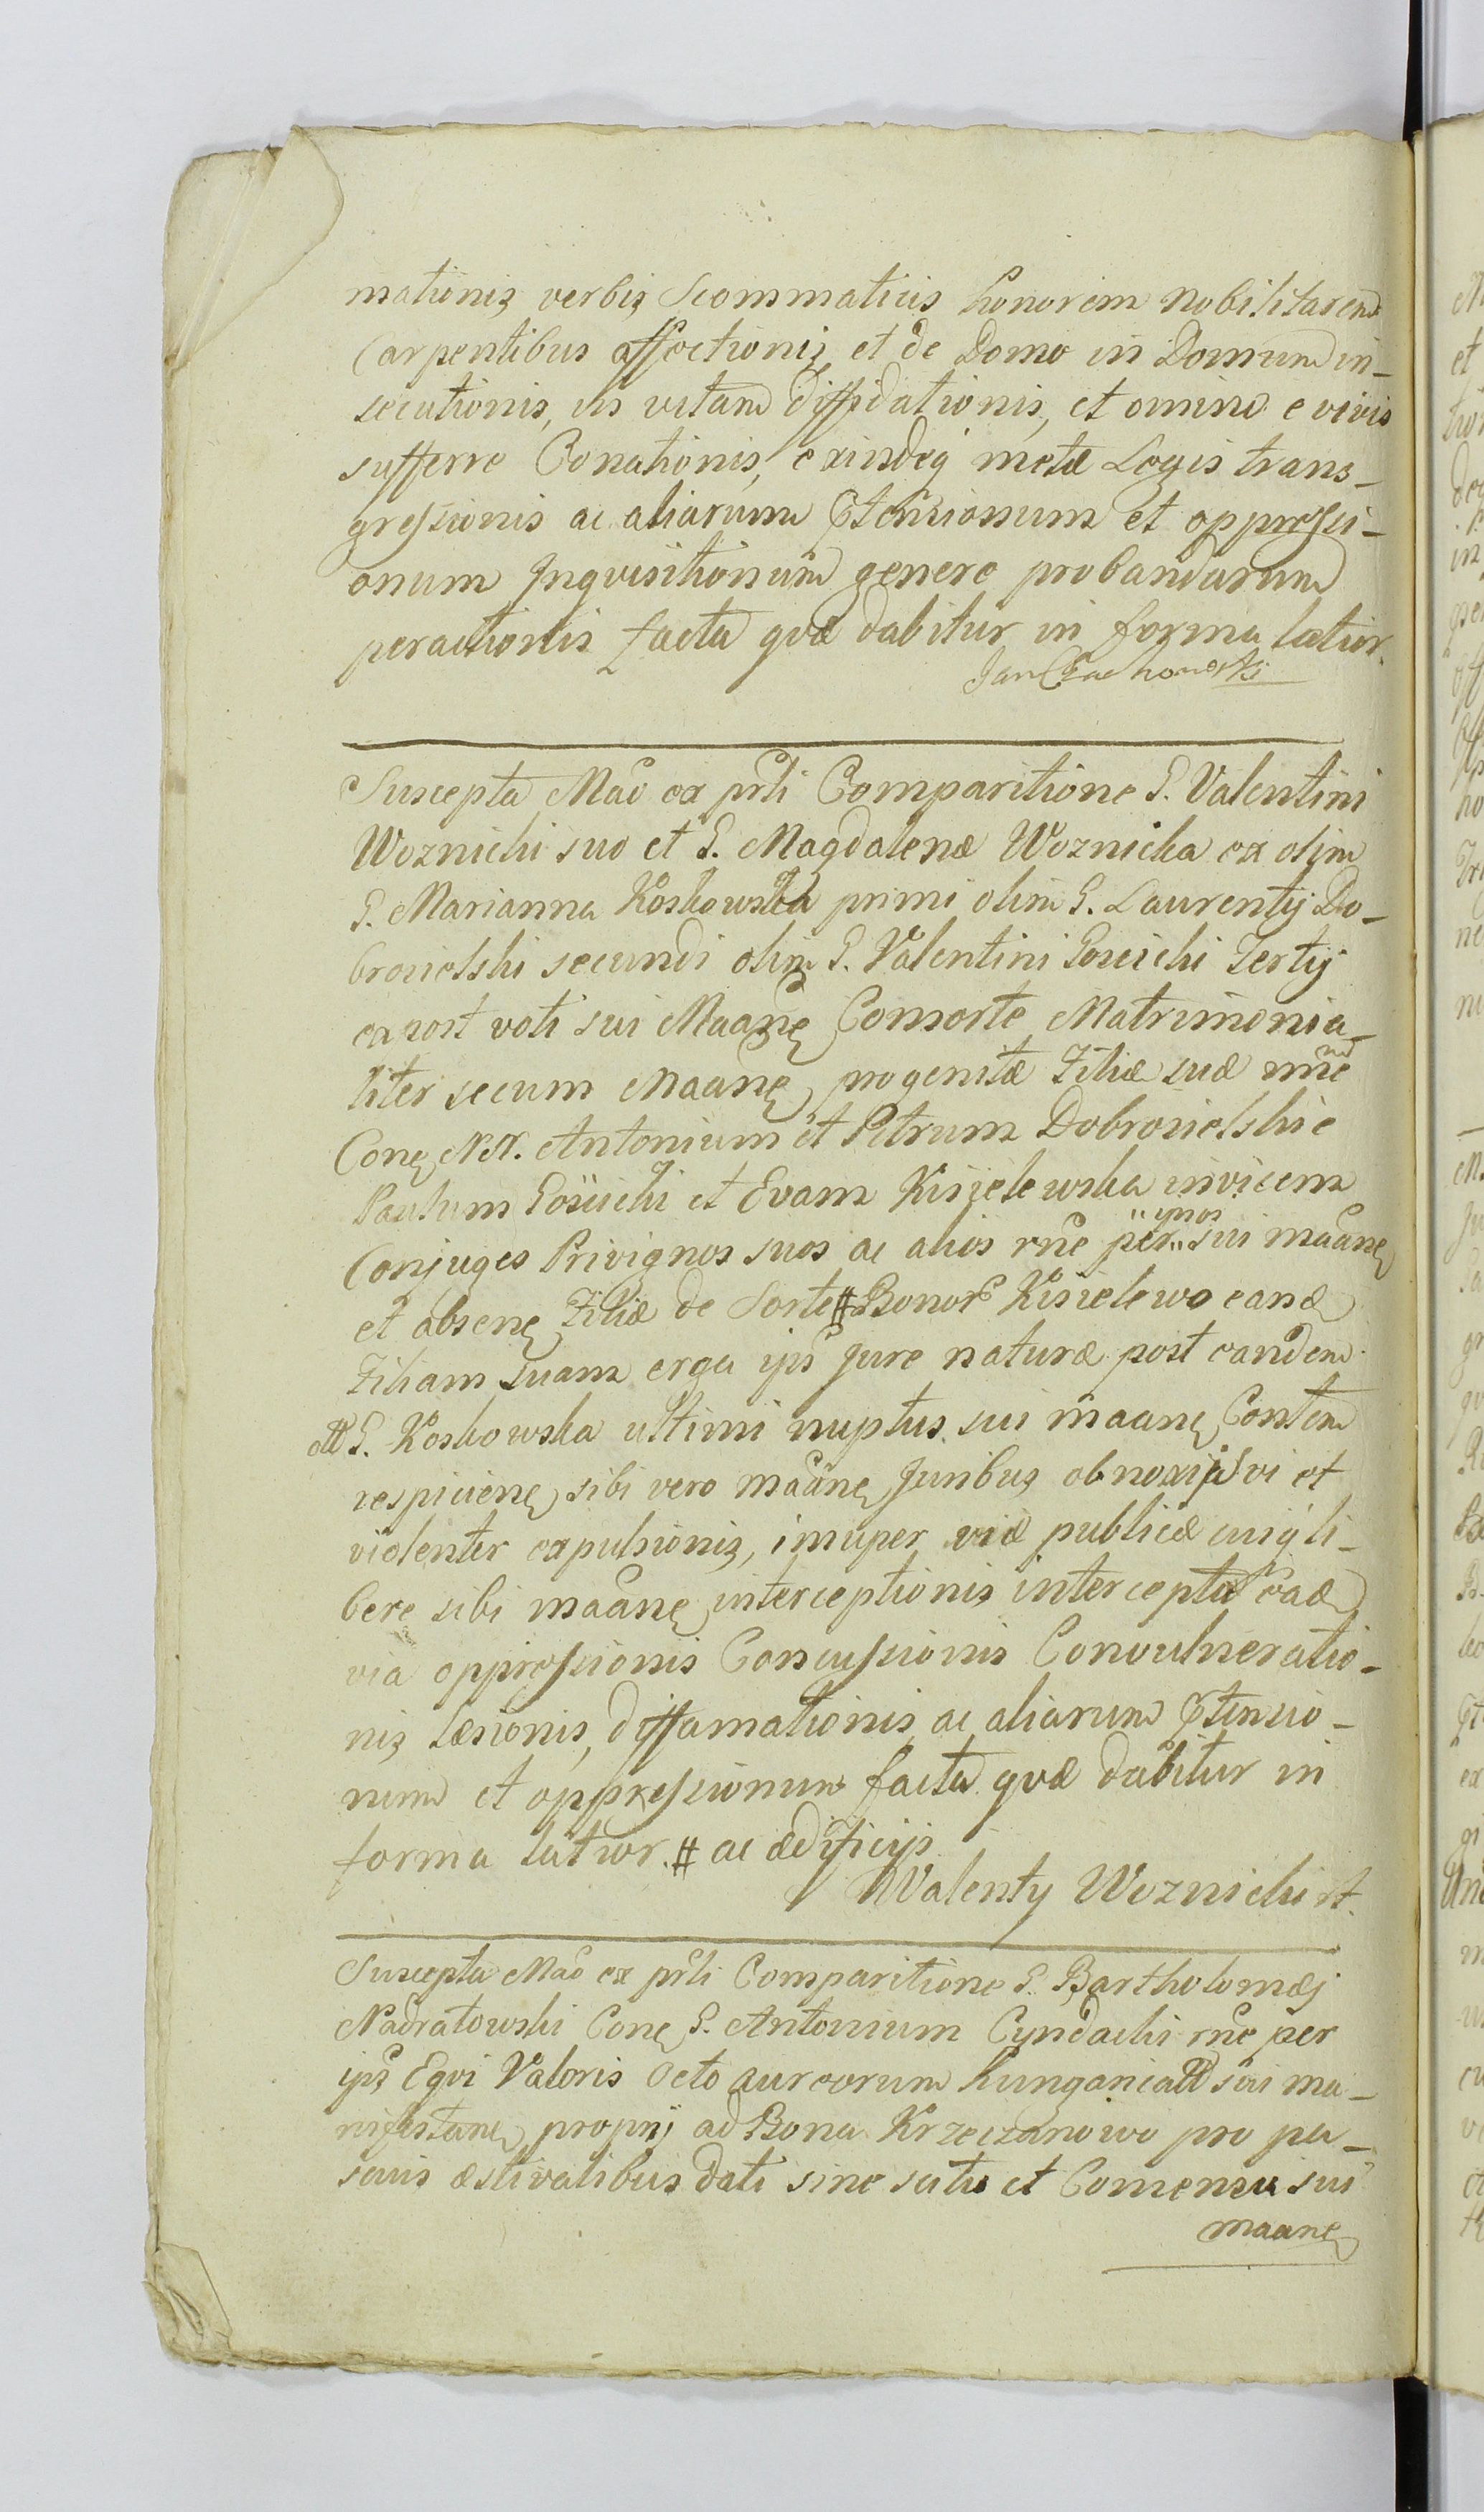 mationis verbis Scommaticis honorem nobilitarem
Carpentibus affectionis et de Domo in Domum in-
secutionis, in vitam diffidationis, et omino e vivis
sufferre Conationis, exindeq metæ Legis trans-
gressionis ac aliarum Ptensionum et oppressi-
onum Inqvisitionum genere probandarum
peractionis facta qvæ dabitur in forma latior.
Jan Czachorowski
Suscepta Mao ex prli Comparitione G. Valentini
Woznicki suo et G. Magdalenæ Woznicka ex olim
G. Marianna Koskowska primi olim G. Laurentij Do-
brosielski secundi olim G. Valentini Gosicki Tertij
expost voti sui Maane Consorte Matrimonia-
liter secum Maane progenitæ Filiæ suæ nnie
Cone NN. Antonium et Petrum Dobrosielskie
Paulum Gosicki et Evam Kisielewska invicem
Conjuges Privignos suos ac alios rne per ipsos sui maane
et absene Filiæ de Sorte # Bonor Kisielewo eand
Filiam suam erga ips Jure naturæ post eandem
G. Koskowska ultimi nuptus sui maane Contem
respiciene sibi vero maane Juribus obnoxijs vi et
violenter expulsionis, insuper viæ publicæ cuiq li-
bere sibi maane interceptionis intercepta ead
via oppressionis Concussionis Convulneratio-
nis læsionis, diffamationis ac aliarum Ptensio-
num et oppressionum facta qvæ dabitur in
forma latior. # ac ædificijs
Walenty Woznicki
Suscepta Mao ex prli Comparitione G. Bartholomæj
Nadratowski Cone G. Antonium Cyndacki rne per
ips Eqvi Valoris Octo aureorum hungarical sui ma-
nifestane proprij ad Bona Krzeczanowo pro pa-
scuis æstivalibus dati sine scitu et Consensu sui
maane